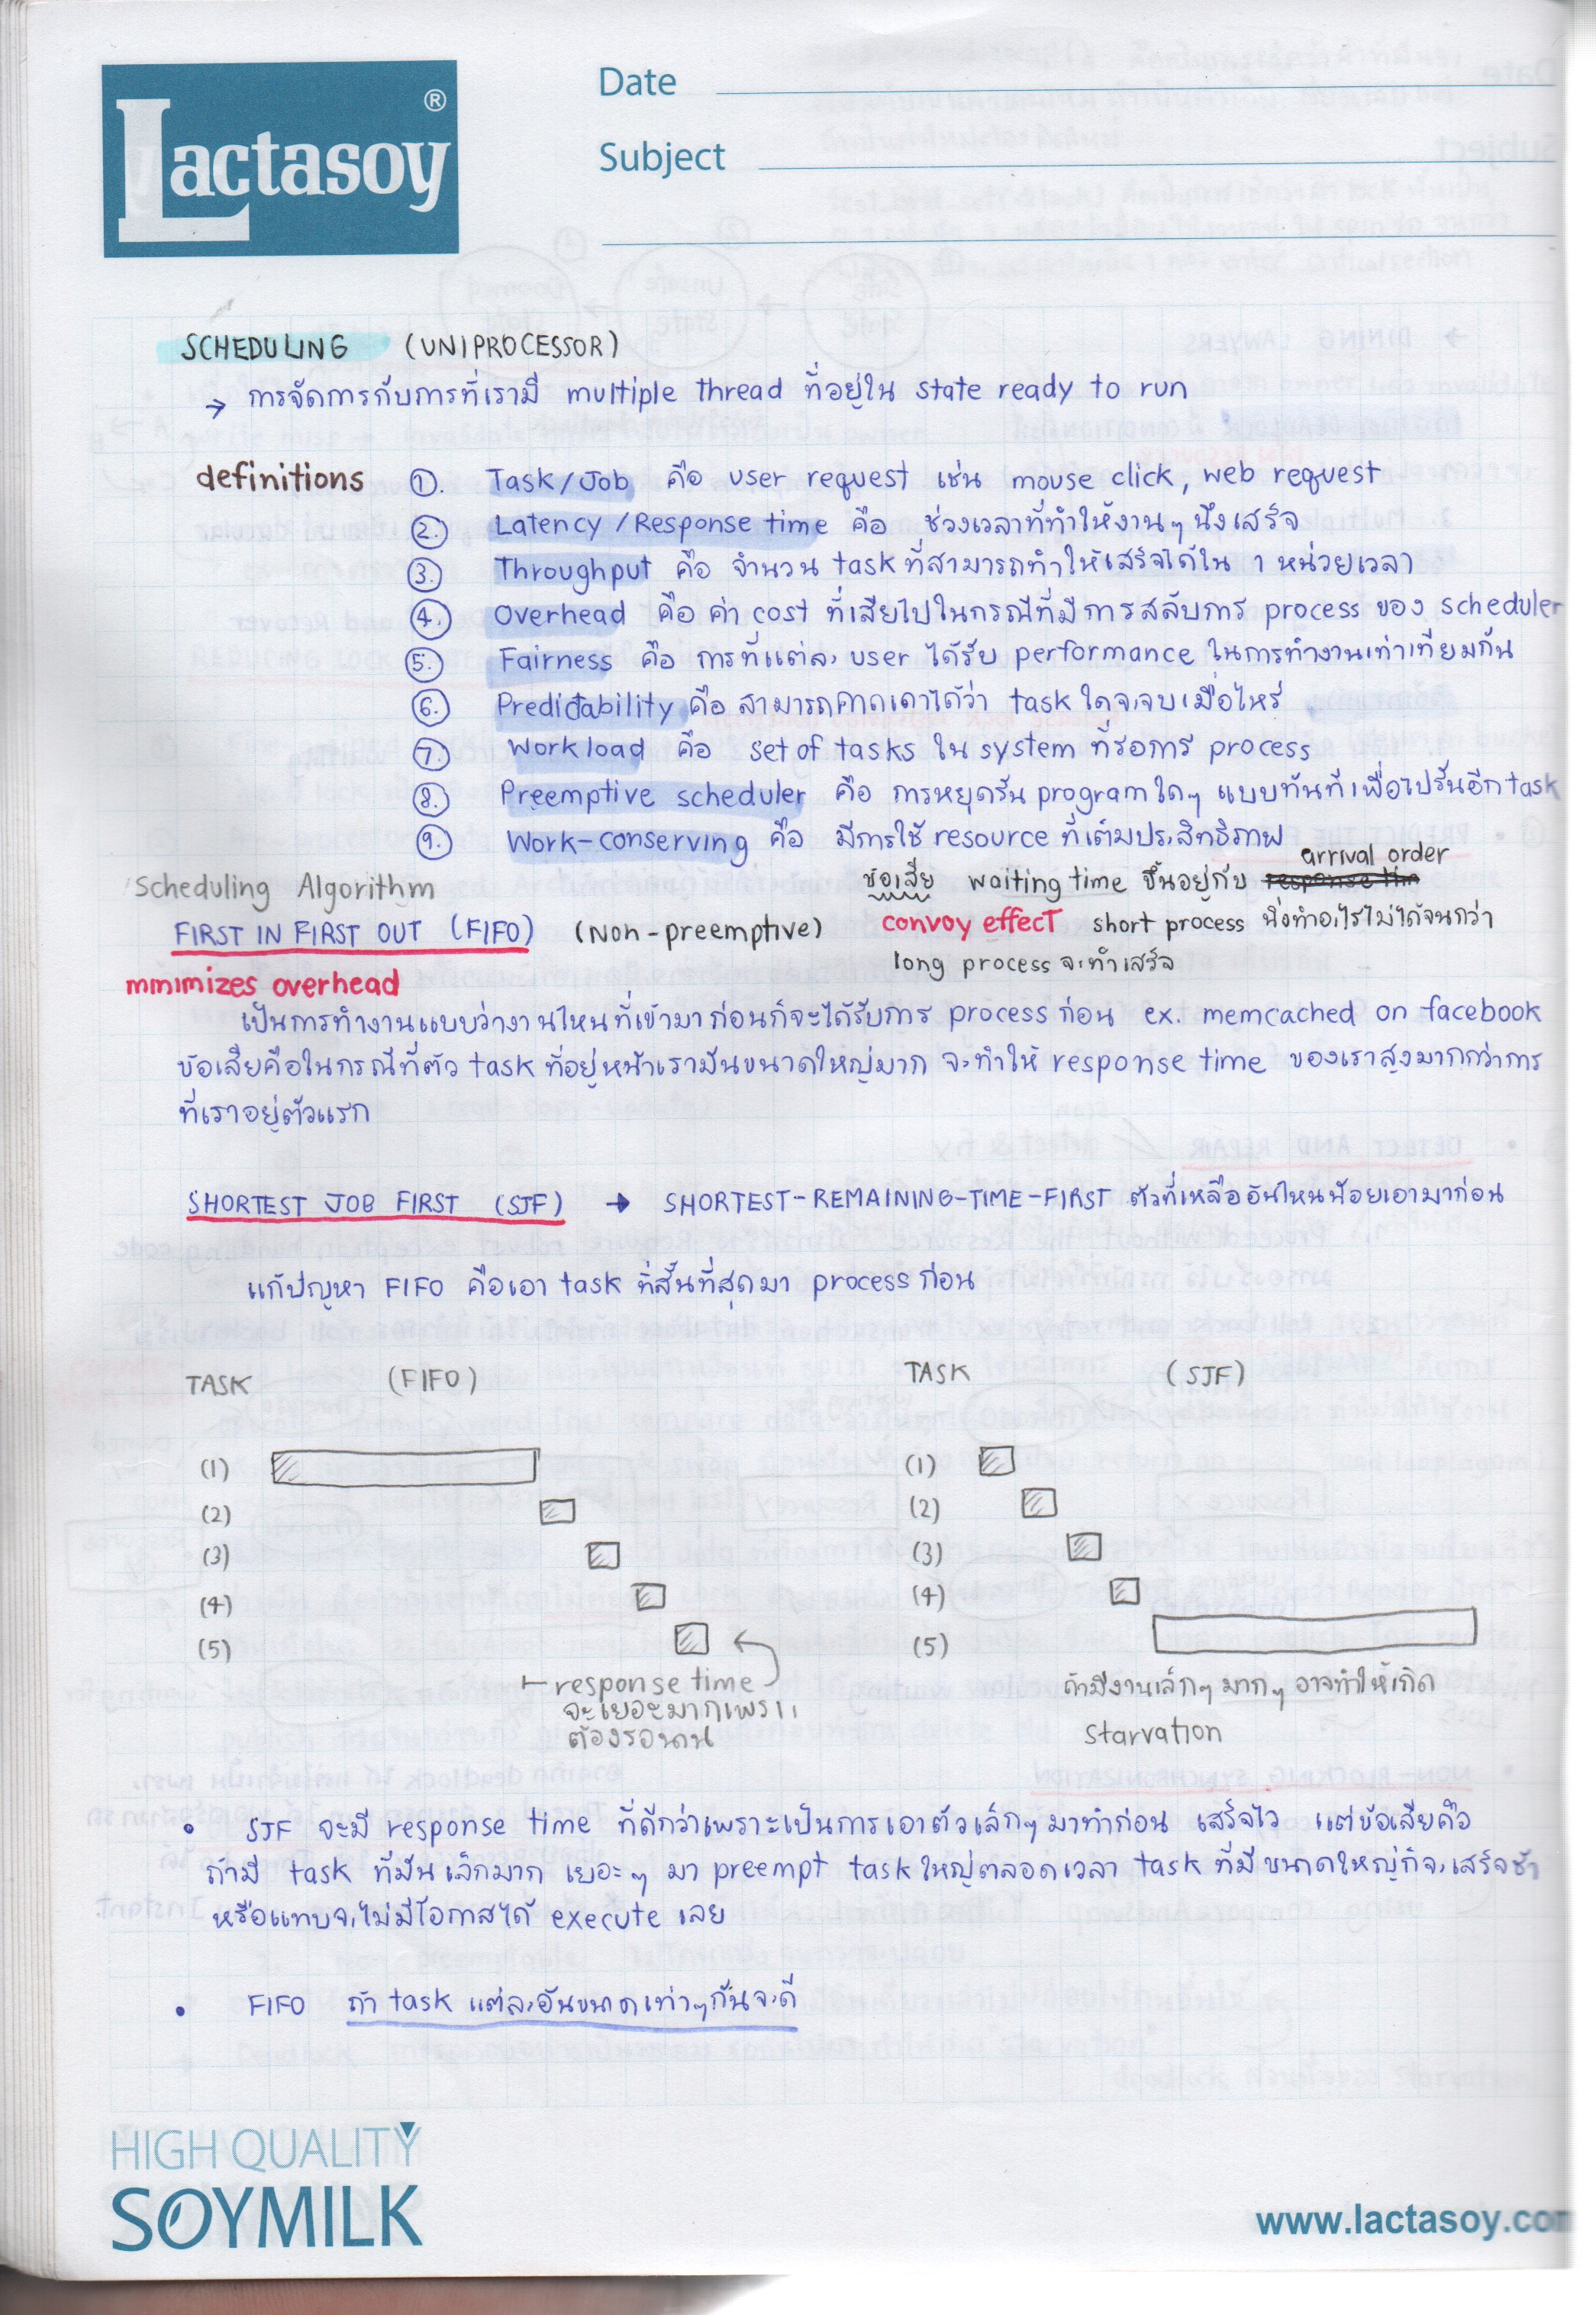 Lactasoy ®
Date
Subject
SCHEDULING (UNIPROCESSOR)
→ การจัดการกับการที่เรามี multiple thread ที่อยู่ใน state ready to run
definitions ①. Task/Job คือ user request เช่น mouse click, web request
②. Latency/Response time คือ ช่วงเวลาที่ทำให้งานๆนึงเสร็จ
③. Throughput คือ จำนวน task ที่สามารถทำให้เสร็จได้ใน 1 หน่วยเวลา
④. Overhead คือ ค่า cost ที่เสียไปในกรณีที่มีการสลับการ process ของ scheduler
⑤. Fairness คือ การที่แต่ละ user ได้รับ performance ในการทำงานเท่าเทียมกัน
⑥. Predictability คือ สามารถคาดเดาได้ว่า task ใดจะจบเมื่อไหร่
⑦. Workload คือ set of tasks ใน system ที่รอการ process
⑧. Preemptive scheduler คือ การหยุดรัน program ใดๆ แบบทันทีเพื่อไปรันอีก task
⑨. Work-conserving คือ มีการใช้ resource ที่เต็มประสิทธิภาพ
Scheduling Algorithm
ข้อเสีย waiting time ขึ้นอยู่กับ response tim arrival order
FIRST IN FIRST OUT (FIFO) (Non-preemptive)
convoy effect short process นี่งทำอะไรไม่ได้จนกว่า
long process จะทำเสร็จ
minimizes overhead
เป็นการทำงานแบบว่างานไหนที่เข้ามาก่อนก็จะได้รับการ process ก่อน ex. memcached on facebook
ข้อเสียคือในกรณีที่ตัว task ที่อยู่หน้าเรามันขนาดใหญ่มาก จะทำให้ response time ของเราสูงมากกว่าการ
ที่เราอยู่ตัวแรก
SHORTEST JOB FIRST (SJF) → SHORTEST-REMAINING-TIME-FIRST ตัวที่เหลืออันไหนน้อยเอามาก่อน
แก้ปัญหา FIFO คือเอา task ที่สั้นที่สุดมา process ก่อน
TASK (FIFO)
(1)
(2)
(3)
(4)
(5)
response time
จะเยอะมากเพราะ
ต้องรอนาน
TASK (SJF)
(1)
(2)
(3)
(4)
(5)
ถ้ามีงานเล็กๆ มากๆ อาจทำให้เกิด
starvation
• SJF จะมี response time ที่ดีกว่าเพราะเป็นการเอาตัวเล็กๆมาทำก่อน เสร็จไว แต่ข้อเสียคือ
ถ้ามี task ที่มันเล็กมาก เยอะๆ มา preempt task ใหญ่ตลอดเวลา task ที่มีขนาดใหญ่ก็จะเสร็จช้า
หรือแทบจะไม่มีโอกาสได้ execute เลย
• FIFO ถ้า task แต่ละอันขนาดเท่าๆกันจะดี
HIGH QUALITY
SOYMILK
www.lactasoy.com